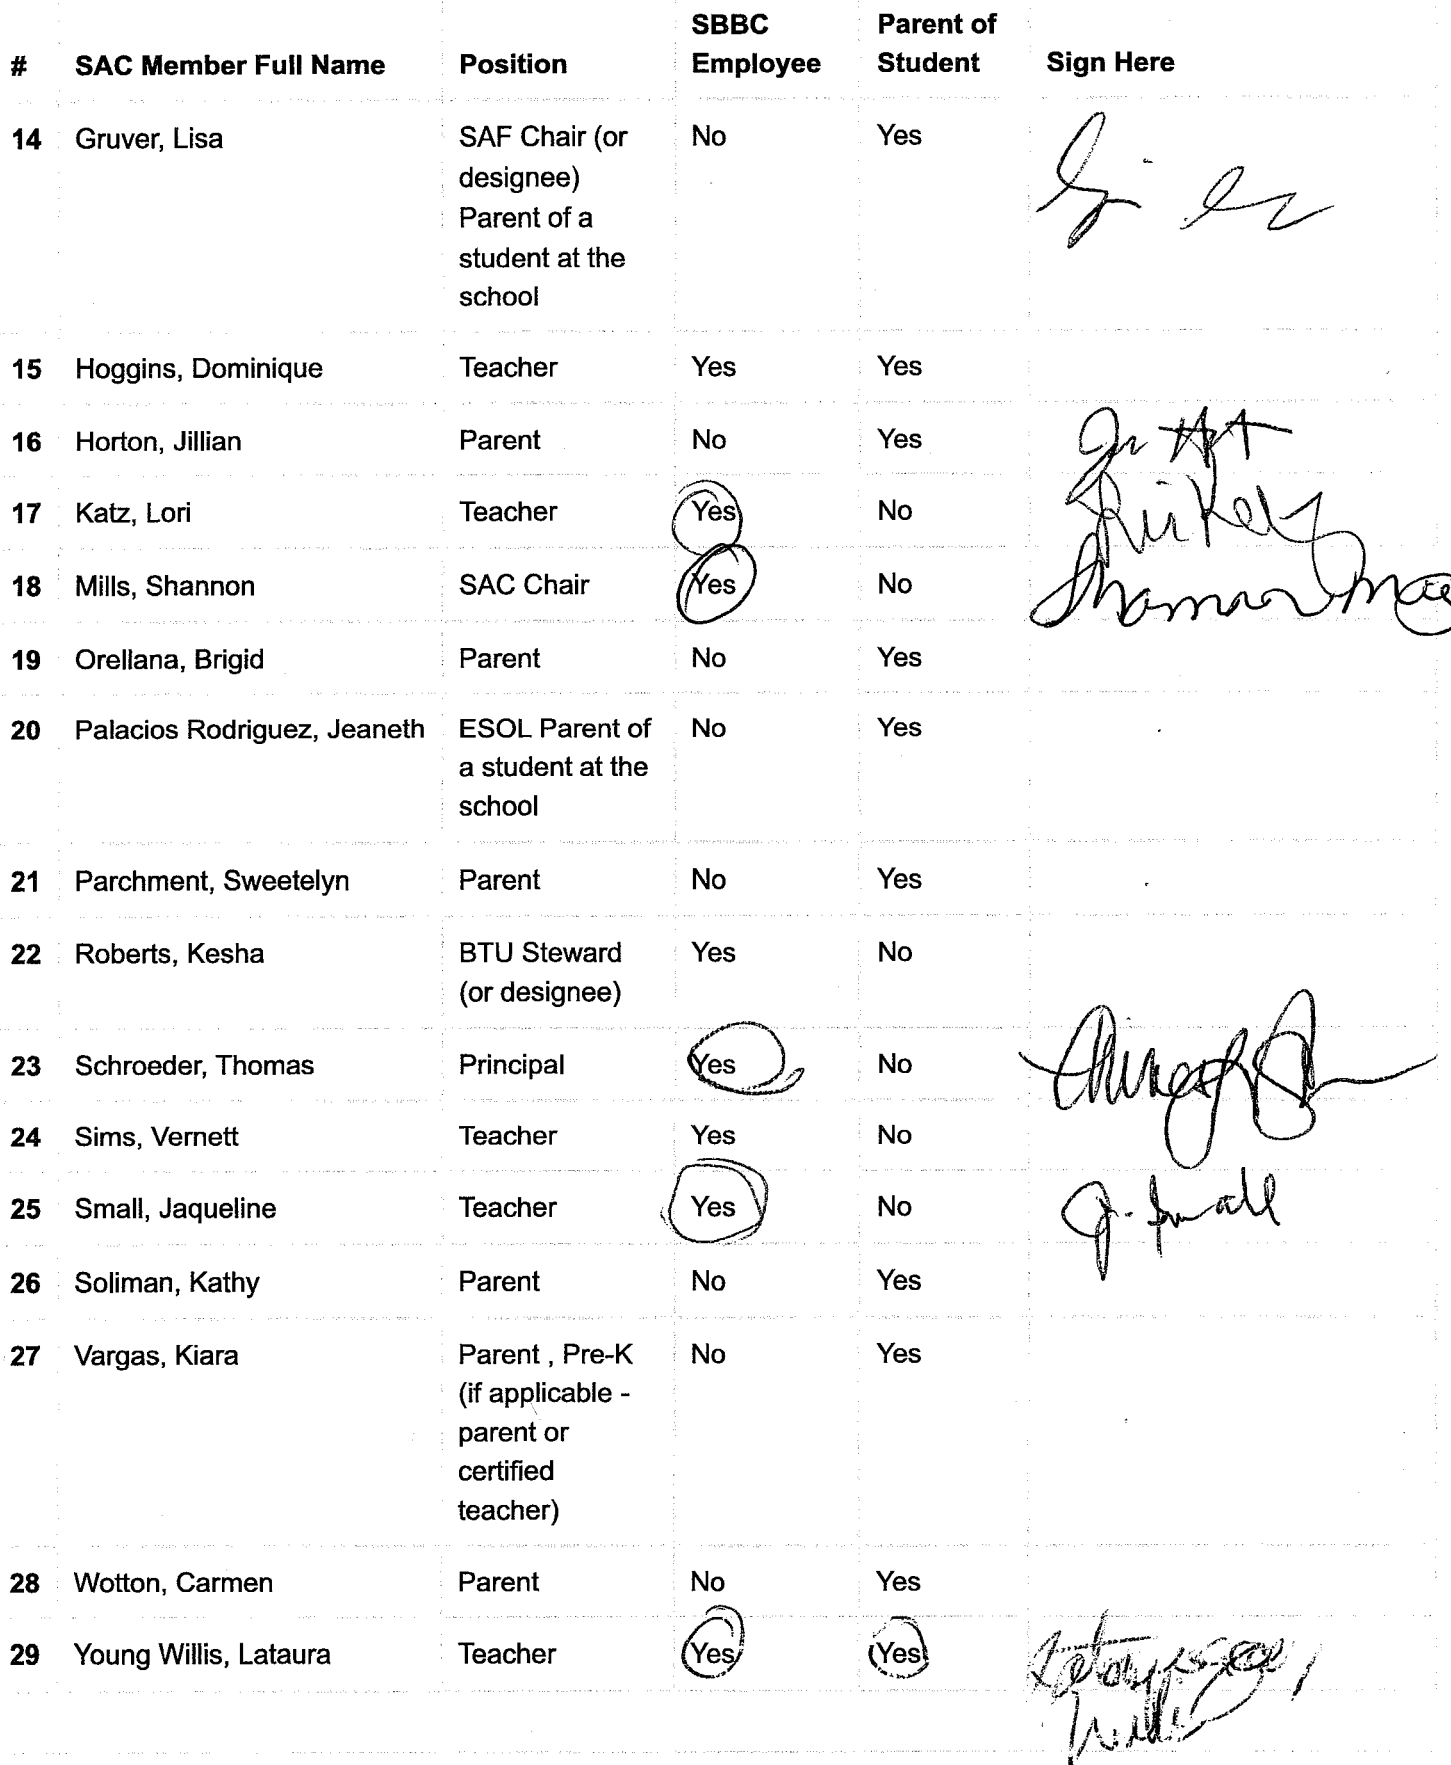 SBBC Parent of
# SAC Member Full Name Position Employee Student Sign Here
14 Gruver, Lisa SAF Chair (or No Yes
designee)
Parent of a
student at the
school
15 Hoggins, Dominique Teacher Yes Yes
16 Horton, Jillian Parent No Yes
17 Katz, Lori Teacher Yes No
18 Mills, Shannon SAC Chair Yes No Shannon
19 Orellana, Brigid Parent No Yes
20 Palacios Rodriguez, Jeaneth ESOL Parent of No Yes
a student at the
school
21 Parchment, Sweetelyn Parent No Yes
22 Roberts, Kesha BTU Steward Yes No
(or designee)
23 Schroeder, Thomas Principal Yes No
24 Sims, Vernett Teacher Yes No
25 Small, Jaqueline Teacher Yes No J. Small
26 Soliman, Kathy Parent No Yes
27 Vargas, Kiara Parent , Pre-K No Yes
(if applicable -
parent or
certified
teacher)
28 Wotton, Carmen Parent No Yes
29 Young Willis, Lataura Teacher Yes Yes